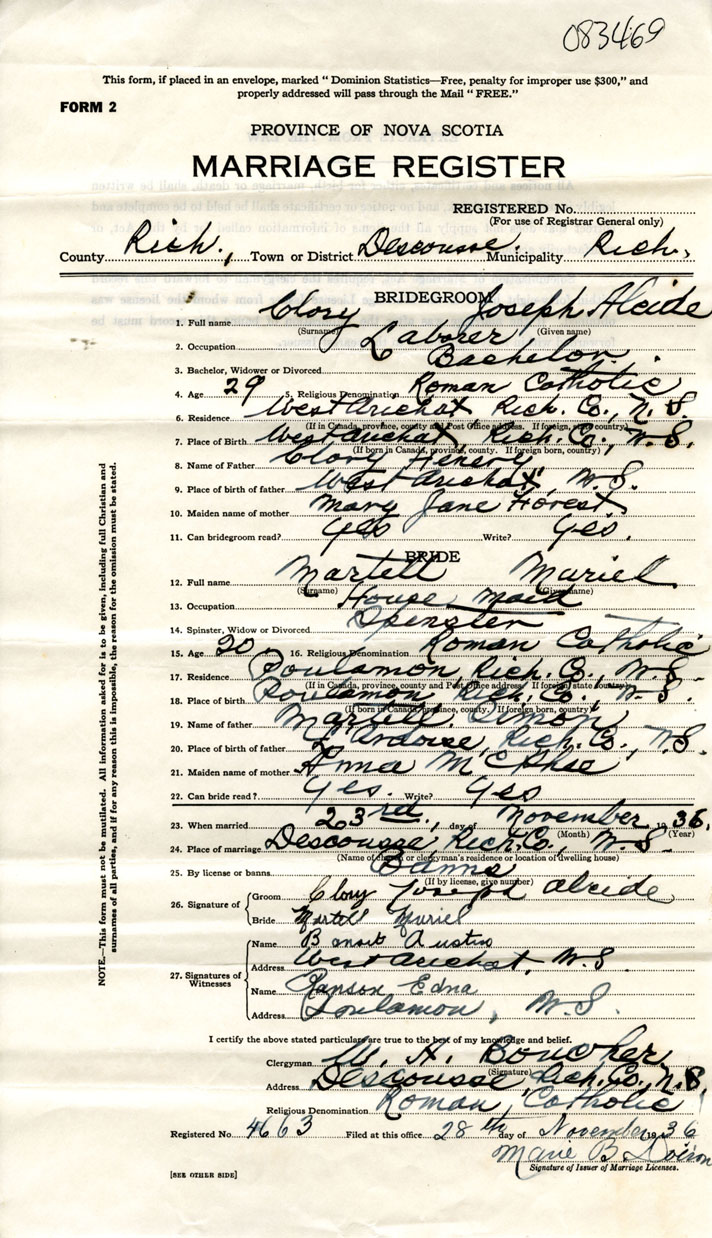 083469
This form, if placed in an envelope, marked "Dominion Statistics—Free, penalty for improper use $300," and
properly addressed will pass through the Mail "FREE."
FORM 2
PROVINCE OF NOVA SCOTIA
MARRIAGE REGISTER
REGISTERED No.
(For use of Registrar General only)
County Rich., Town or District Descousse. Municipality Rich,
BRIDEGROOM
1. Full name Clory Joseph Alcide
(Surname) (Given name)
2. Occupation Laborer
3. Bachelor, Widower or Divorced Bachelor.
4. Age 29 5. Religious Denomination Roman Catholic
6. Residence West Arichat, Rich. Co., N. S.
(If in Canada, province, county and Post Office address. If foreign, country)
7. Place of Birth West Arichat, Rich. Co., N. S.
(If born in Canada, province, county. If foreign born, country)
8. Name of Father Clory Henery
9. Place of birth of father West Arichat, N. S.
10. Maiden name of mother Mary Jane Forest
11. Can bridegroom read? Yes Write? Yes.
BRIDE
12. Full name Martell Muriel
(Surname) (Given name)
13. Occupation House maid
14. Spinster, Widow or Divorced Spinster
15. Age 20 16. Religious Denomination Roman Catholic
17. Residence Poulamon, Rich. Co., N. S.
(If in Canada, province, county and Post Office address. If foreign state country)
18. Place of birth Poulamon, Rich. Co., N. S.
(If born in Canada, province, county. If foreign born, country)
19. Name of father Martell Simon
20. Place of birth of father L'Ardoise, Rich. Co., N. S.
21. Maiden name of mother Anna McPhee
22. Can bride read? Yes. Write? Yes
23. When married 23rd, day of November 1936.
(Month) (Year)
24. Place of marriage Descousse, Rich. Co., N. S.
(Name of church or clergyman's residence or location of dwelling house)
25. By license or banns Banns
(If by license, give number)
26. Signature of Groom Clory Joseph Alcide
Bride Martell Muriel
27. Signatures of Witnesses Name Austin
Address West Arichat, N. S.
Name Edna
Address Poulamon, N. S.
I certify the above stated particulars are true to the best of my knowledge and belief.
Clergyman A. Boucher
(Signature)
Address Descousse, Rich. Co., N. S.
Religious Denomination Roman Catholic
Registered No. 4663 Filed at this office 28th day of November 1936
Marie B
Signature of Issuer of Marriage Licenses.
[SEE OTHER SIDE]
NOTE.—This form must not be mutilated. All information asked for is to be given, including full Christian and
surnames of all parties, and if for any reason this is impossible, the reason for the omission must be stated.